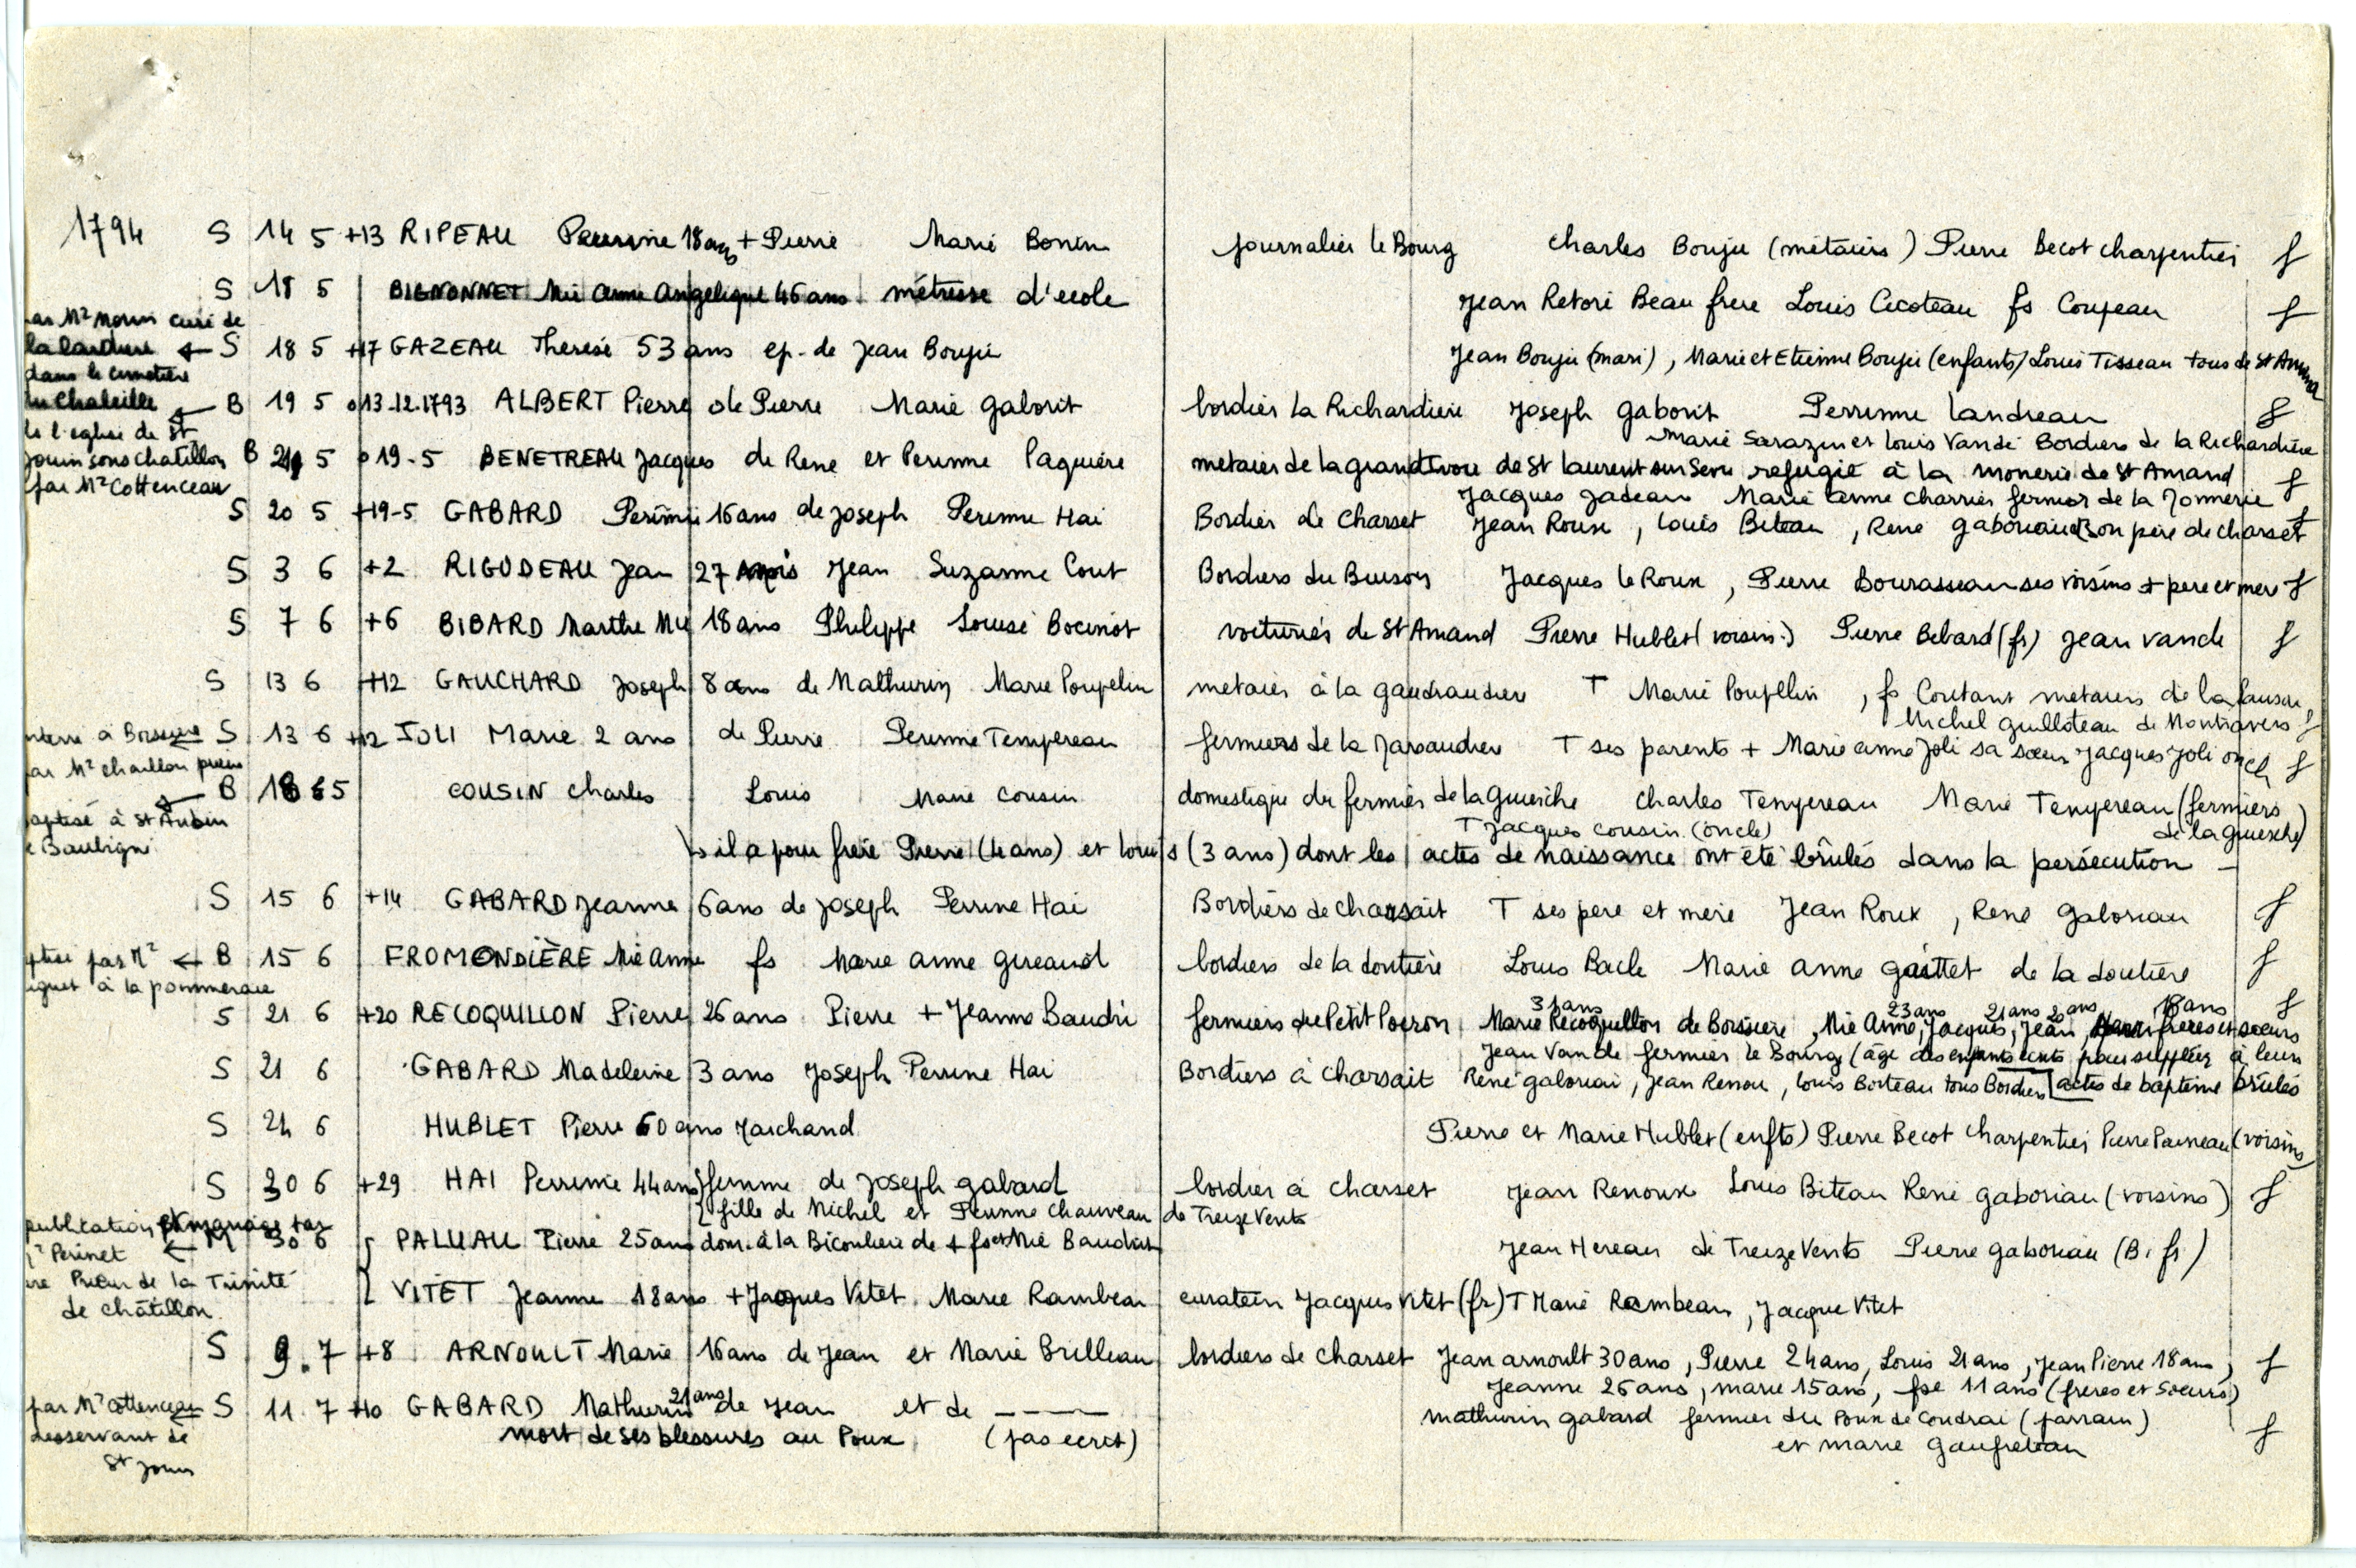 1794 S 14 5 +13 RIPEAU Perrine 18 ans + Pierre Marie Bonin journalier le Bourg Charles Bouju (métaiers) Pierre Becot charpentier f
S 18 5 BIGNONNET Mie Anne Angelique 46 ans métresse d'ecole Jean Retoré Beau frere Louis Cicoteau fs Coupeau f
par Mr Morin curé de
S 18 5 +17 GAZEAU Therese 53 ans ep. de Jean Bouju Jean Bouju (mari), Marie et Etienne Bouju (enfants) Louis Tisseau tous de St Amand
dans le cimetière
B 19 5 o 13.12.1793 ALBERT Pierre de Pierre Marie Gaborit bordier la Richardiere Joseph Gaborit Perrinne Landreau f
de l'eglise de St
Marie Sarazin et Louis Vandé Bordiers de la Richardière
Jouin sous Chatillon B 21 5 o 19-5 BENETREAU Jacques de Rene et Perinne Paquiere metaier de la de St Laurent sur Sevre refugié à la monerie de St Amand f
par Mr Cottenceau
Jacques Jadeau Marie anne Charrier fermier de la Jonnerie
S 20 5 +19-5 GABARD Perinne 16 ans de Joseph Perinne Hai Bordier de Charset Jean Roux, Louis Biteau, René Gaboriaud son père de charset f
S 3 6 +2 RIGUDEAU Jean 27 mois Jean Suzanne Cout Bordiers du Buisson Jacques le Roux, Pierre Bourasseau ses voisins + pere et mere f
S 7 6 +6 BIBARD Marthe Mie 18 ans Philippe Louise Bocinot voiturier de St Amand Pierre Hublet (voisin) Pierre Bibard (fr) Jean vande f
S 13 6 +12 GAUCHARD Joseph 8 ans de Mathurin Marie Poupelin metaier à la gaudraudiere T Marie Poupllin, fs Coutant metaiers de la
Michel Guilloteau de Montravers f
S 13 6 +12 JOLI Marie 2 ans de Pierre Perinne Tempereau fermiers de la Javaudiere T ses parents + Marie anne Joli sa sœur Jacques Joli oncle f
par Mr Chaillou prieur
B 18 6 5 COUSIN Charles Louis Marie Cousin domestique du fermier de la Guierche Charles Tempereau Marie Tempereau (fermiers
baptisé à St Aubin
T Jacques Cousin (oncle) de la guierche)
de Baubigné
il a pour frere Pierre (4 ans) et Louis (3 ans) dont les actes de naissance ont été brulés dans la persécution -
S 15 6 +14 GABARD Jeanne 6 ans de Joseph Perrine Hai Bordiers de charsait T ses pere et mere Jean Roux, René Gaboriau f
B 15 6 FROMONDIÈRE Mie Anne fs Marie anne gireaud bordiers de la doutière Louis Bacle Marie Anne gaittet de la doutiere f
à la pommeraie
31 ans 23 ans 21 ans 20 ans 18 ans
S 21 6 +20 RECOQUILLON Pierre 26 ans Pierre + Jeanne Baudri fermiers du Petit Poiron Marie Recoquillon de Boissiere, Mie Anne, Jacques, Jean, freres et sœurs f
Jean Vande fermier le Bourg (âge des enfants ecrits pour suppléer à leurs
S 21 6 GABARD Madeleine 3 ans Joseph Perrine Hai Bordiers à Charsait René gaboriai, Jean Renou, Louis Boiteau tous Bordiers actes de baptême brulés
S 24 6 HUBLET Pierre 60 ans Marchand Pierre et Marie Hublet (enfts) Pierre Becot charpentier Pierre Paineau (voisins)
S 30 6 +29 HAI Perrinne 44 ans femme de Joseph gabard bordier à charset Jean Renoux Louis Biteau René gaboriau (voisins) f
fille de Michel et Perinne Chauveau de Treize Vents
publication et mariage par
Mr Perinet 30 6 PALUAU Pierre 25 ans dom. à la Bicouliere de + fs et Mie Baudoin Jean Hereau de Treize Vents Pierre gaboriau (B. fr)
Prieur de la Trinité
de Châtillon
VITET Jeanne 18 ans + Jacques Vitet Marie Rambeau curateur Jacques Vitet (fr) T Marie Rambeau, Jacque Vitet
S 9.7 +8 ARNOULT Marie 16 ans de Jean et Marie Brilleau bordiers de charset Jean arnoult 30 ans, Pierre 24 ans, Louis 21 ans, Jean Pierre 18 ans, f
Jeanne 26 ans, marie 15 ans, fse 11 ans (freres et sœurs)
par Mr Cottenceau S 11.7 +10 GABARD Mathurin 21 ans de Jean et de ——— Mathurin gabard fermier du Poux de Coudrai (parrain) f
desservant de
St Jouin
mort de ses blessures au Poux (pas ecrit) et marie Gaufreteau